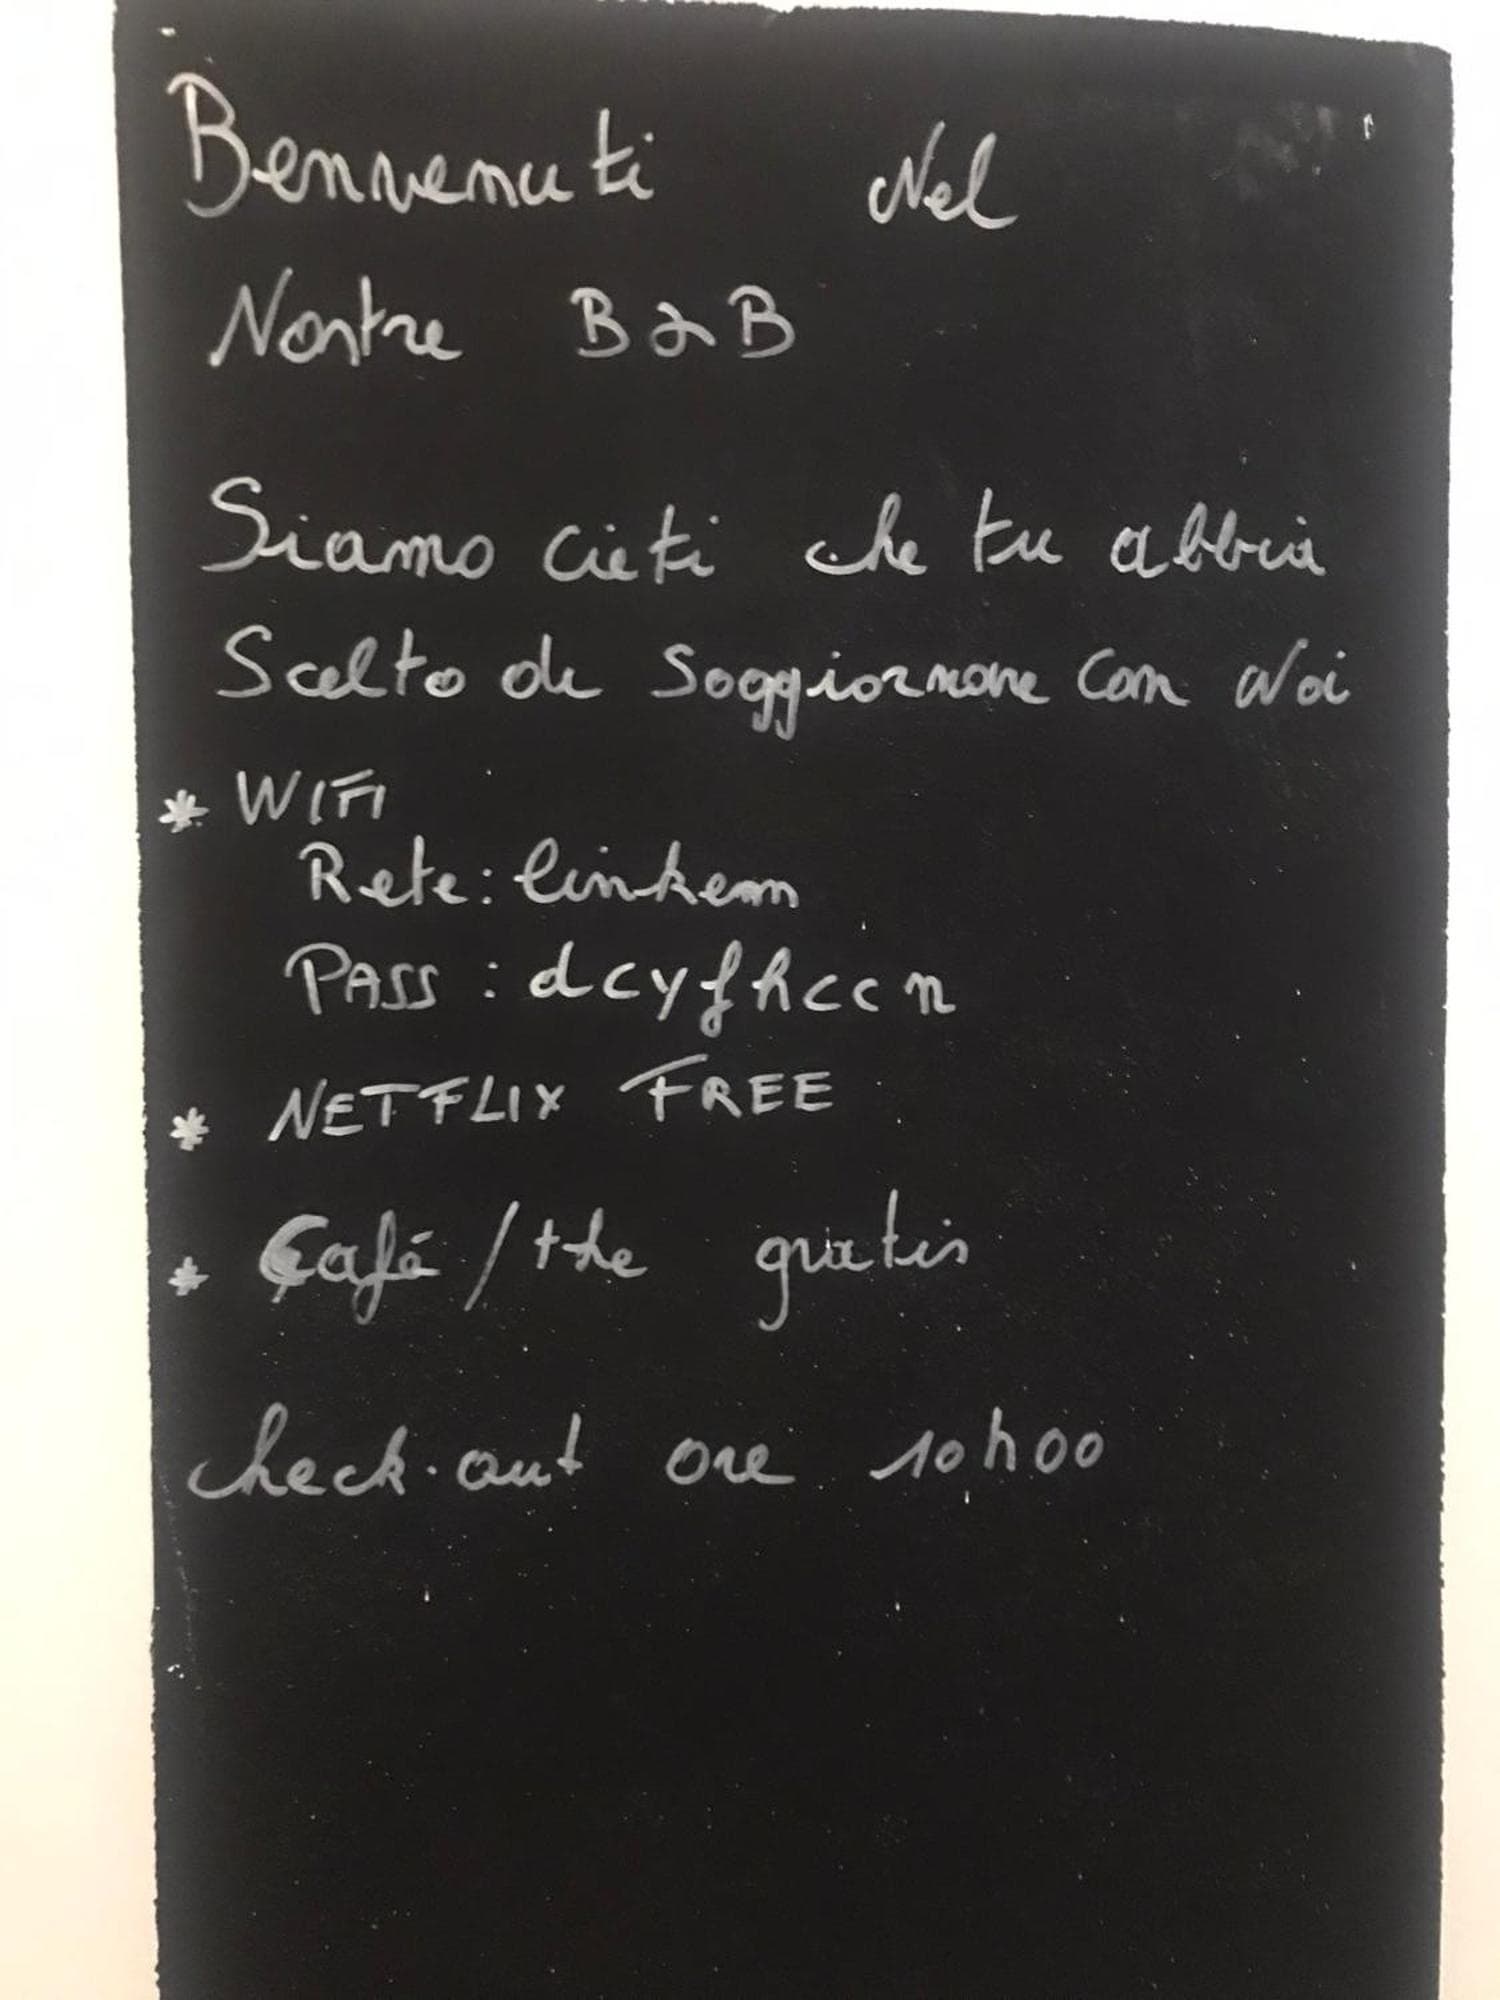 Benvenuti Nel
Nostre B&B
Siamo cieti che tu abbia
Scelto di Soggiornare Con Noi
* WIFI
Rete: linkem
PASS: dcyfhccn
* NETFLIX FREE
* Café/the gratis
check-out ore 10h00